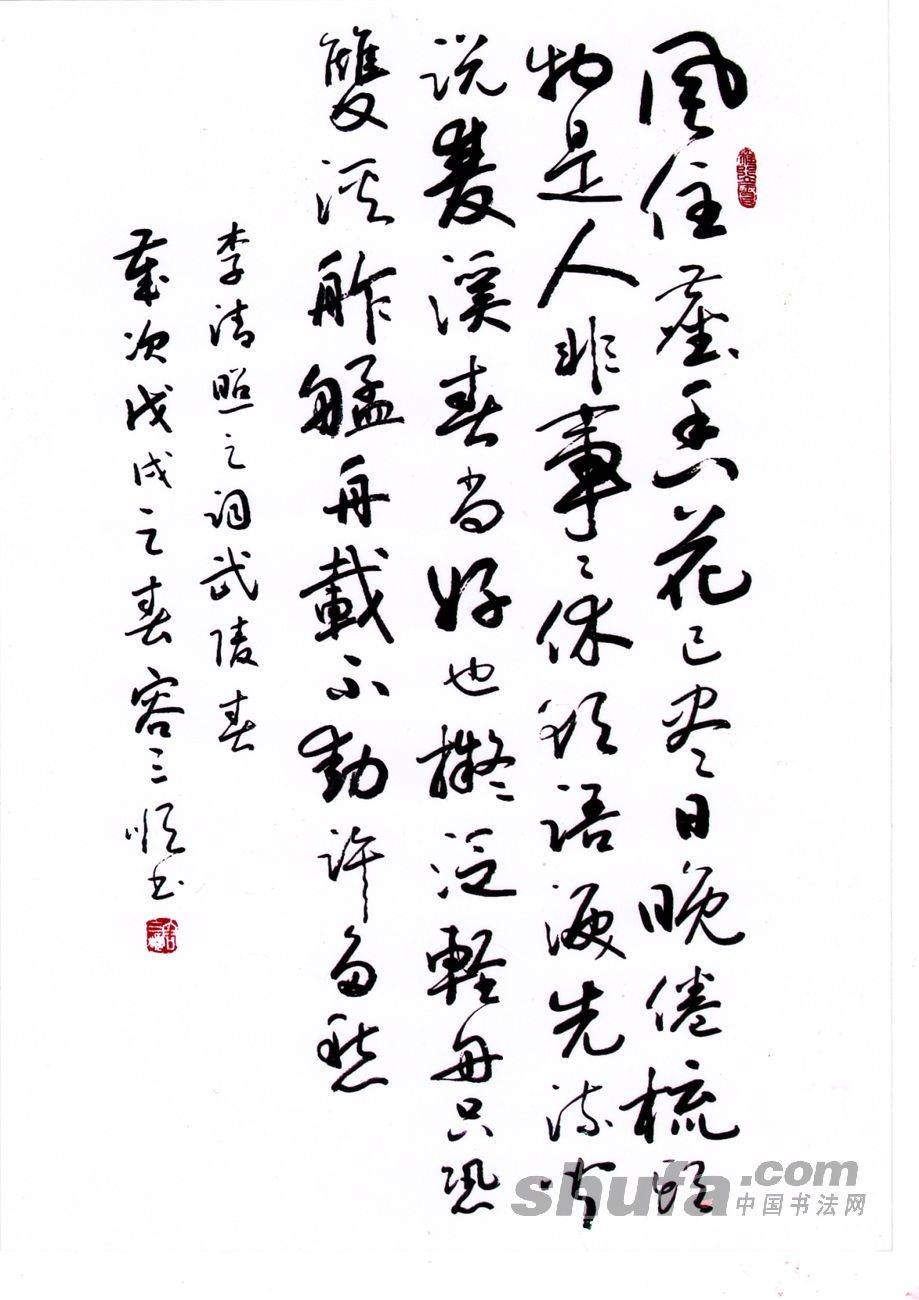 風住塵香花已尽日晚倦梳頭
物是人非事々休欲語淚先流聞
説雙溪春尚好也擬泛輕舟只恐
雙溪舴艋舟載不動許多愁
李清照之詞武陵春
歲次戊戌之春容三順书
shufa.com
中国书法网